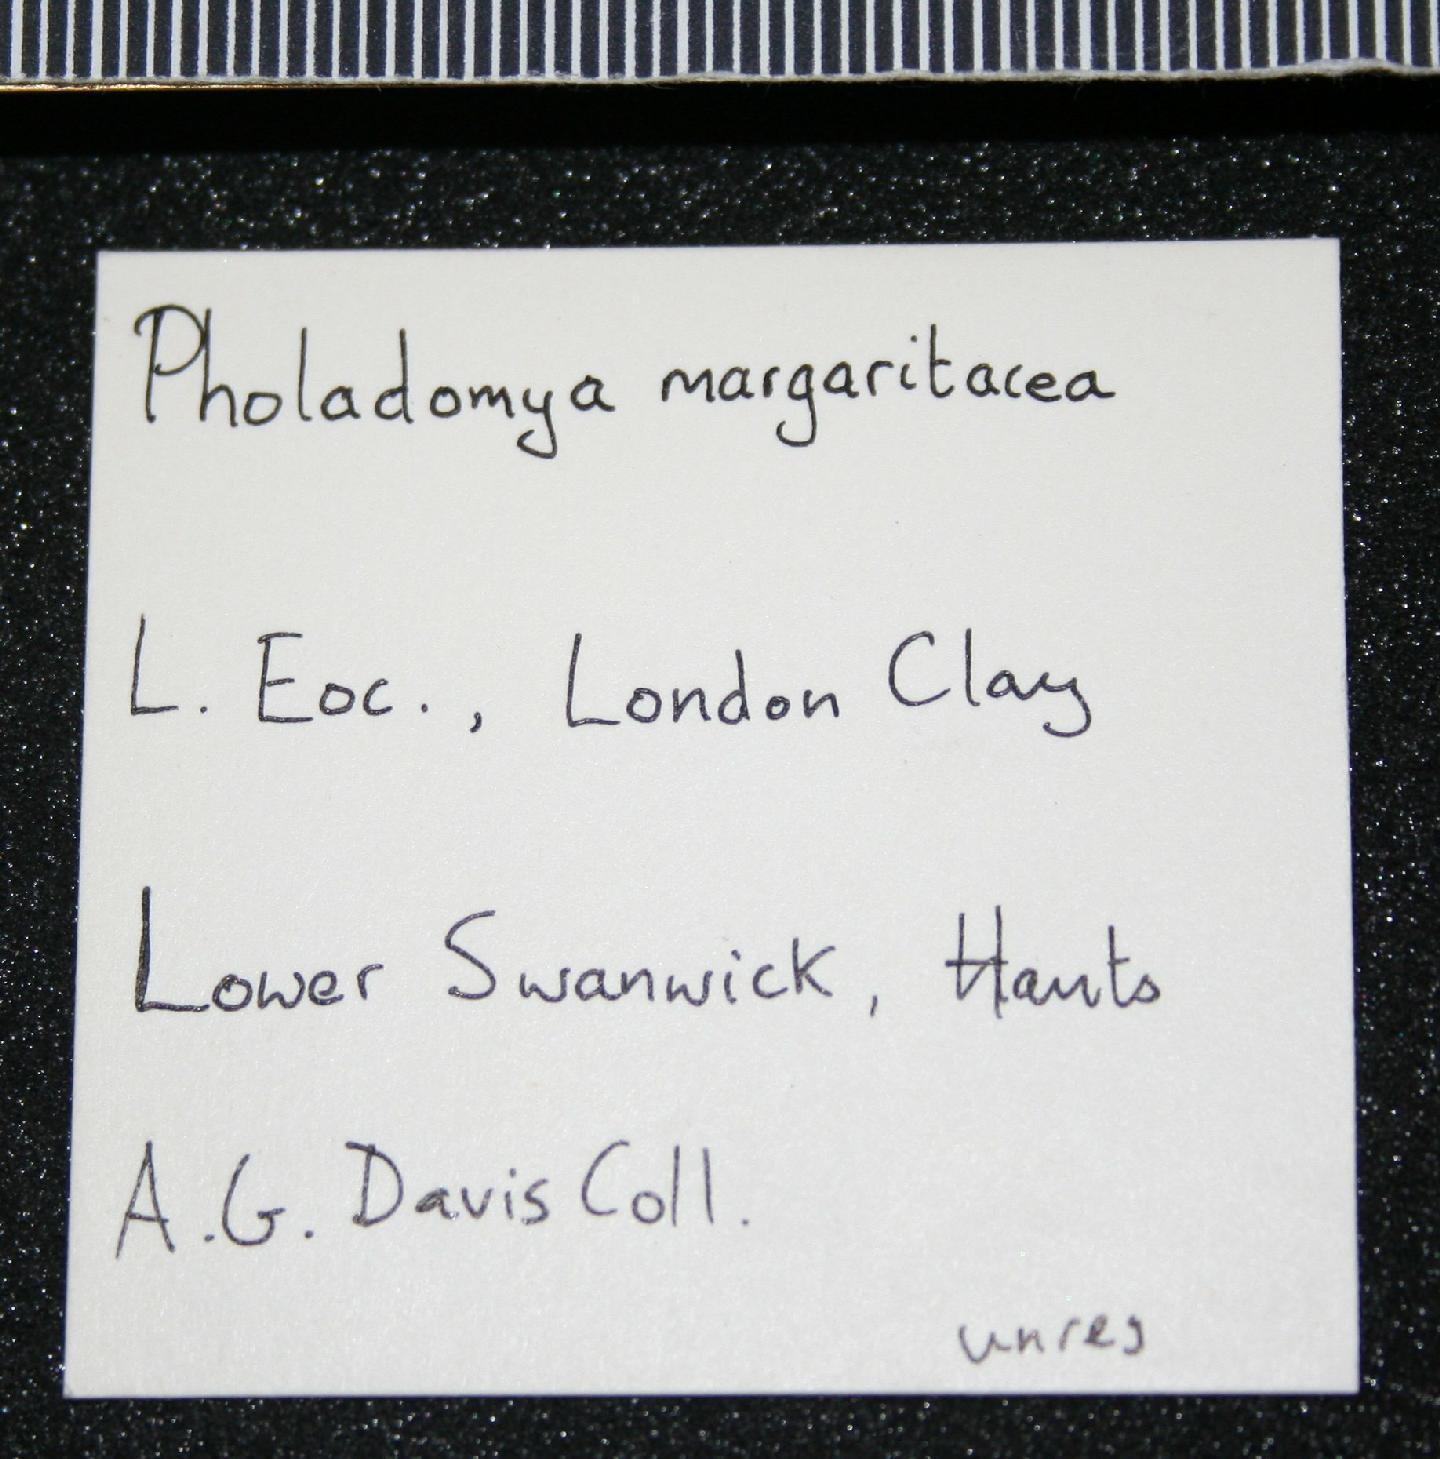 Pholadomya margaritacea
L. Eoc., London Clay
Lower Swanwick, Hants
A.G. Davis Coll.
unreg